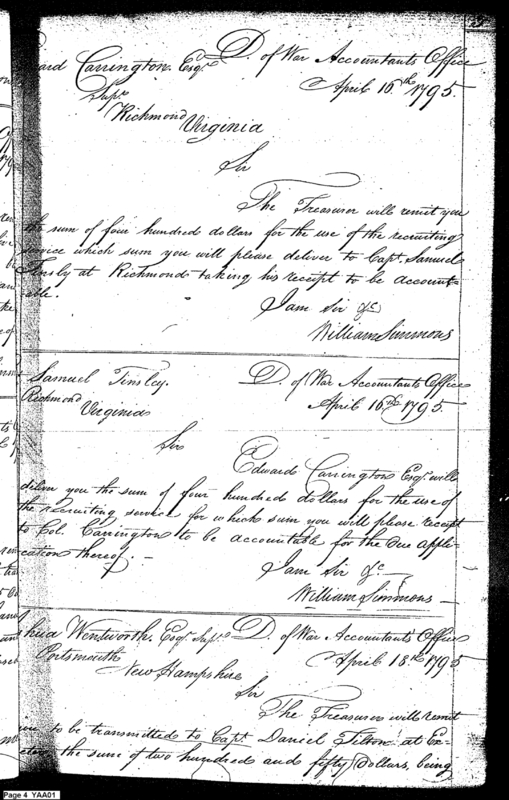 ard Carrington. Esqr. D. of War Accountants Office
Supr. April 16th 1795.
Richmond
Virginia
Sir
The Treasurer will remit you
the sum of four hundred dollars for the use of the recruiting
service which sum you will please deliver to Capt. Samuel
Tinsly at Richmond taking his receipt to be account-
able.
I am Sir &c
William Simmons
Samuel Tinsley. D. of War Accountants Office
Richmond April 16th 1795.
Virginia
Sir
Edward Carrington Esqr. will
deliver you the sum of four hundred dollars for the use of
the recruiting service for which sum you will please receipt
to Col. Carrington to be accountable for the due appli-
cation thereof. -
I am Sir &c. -
William Simmons
shua Wentworth. Esqr. Supr. D. of War Accountants Office
Portsmouth April 18th 1795
New Hampshire
Sir
The Treasurer will remit
to be transmitted to Capt. Daniel Tilton at Ex-
eter the sum of two hundred and fifty Dollars, being
Page 4 YAA01